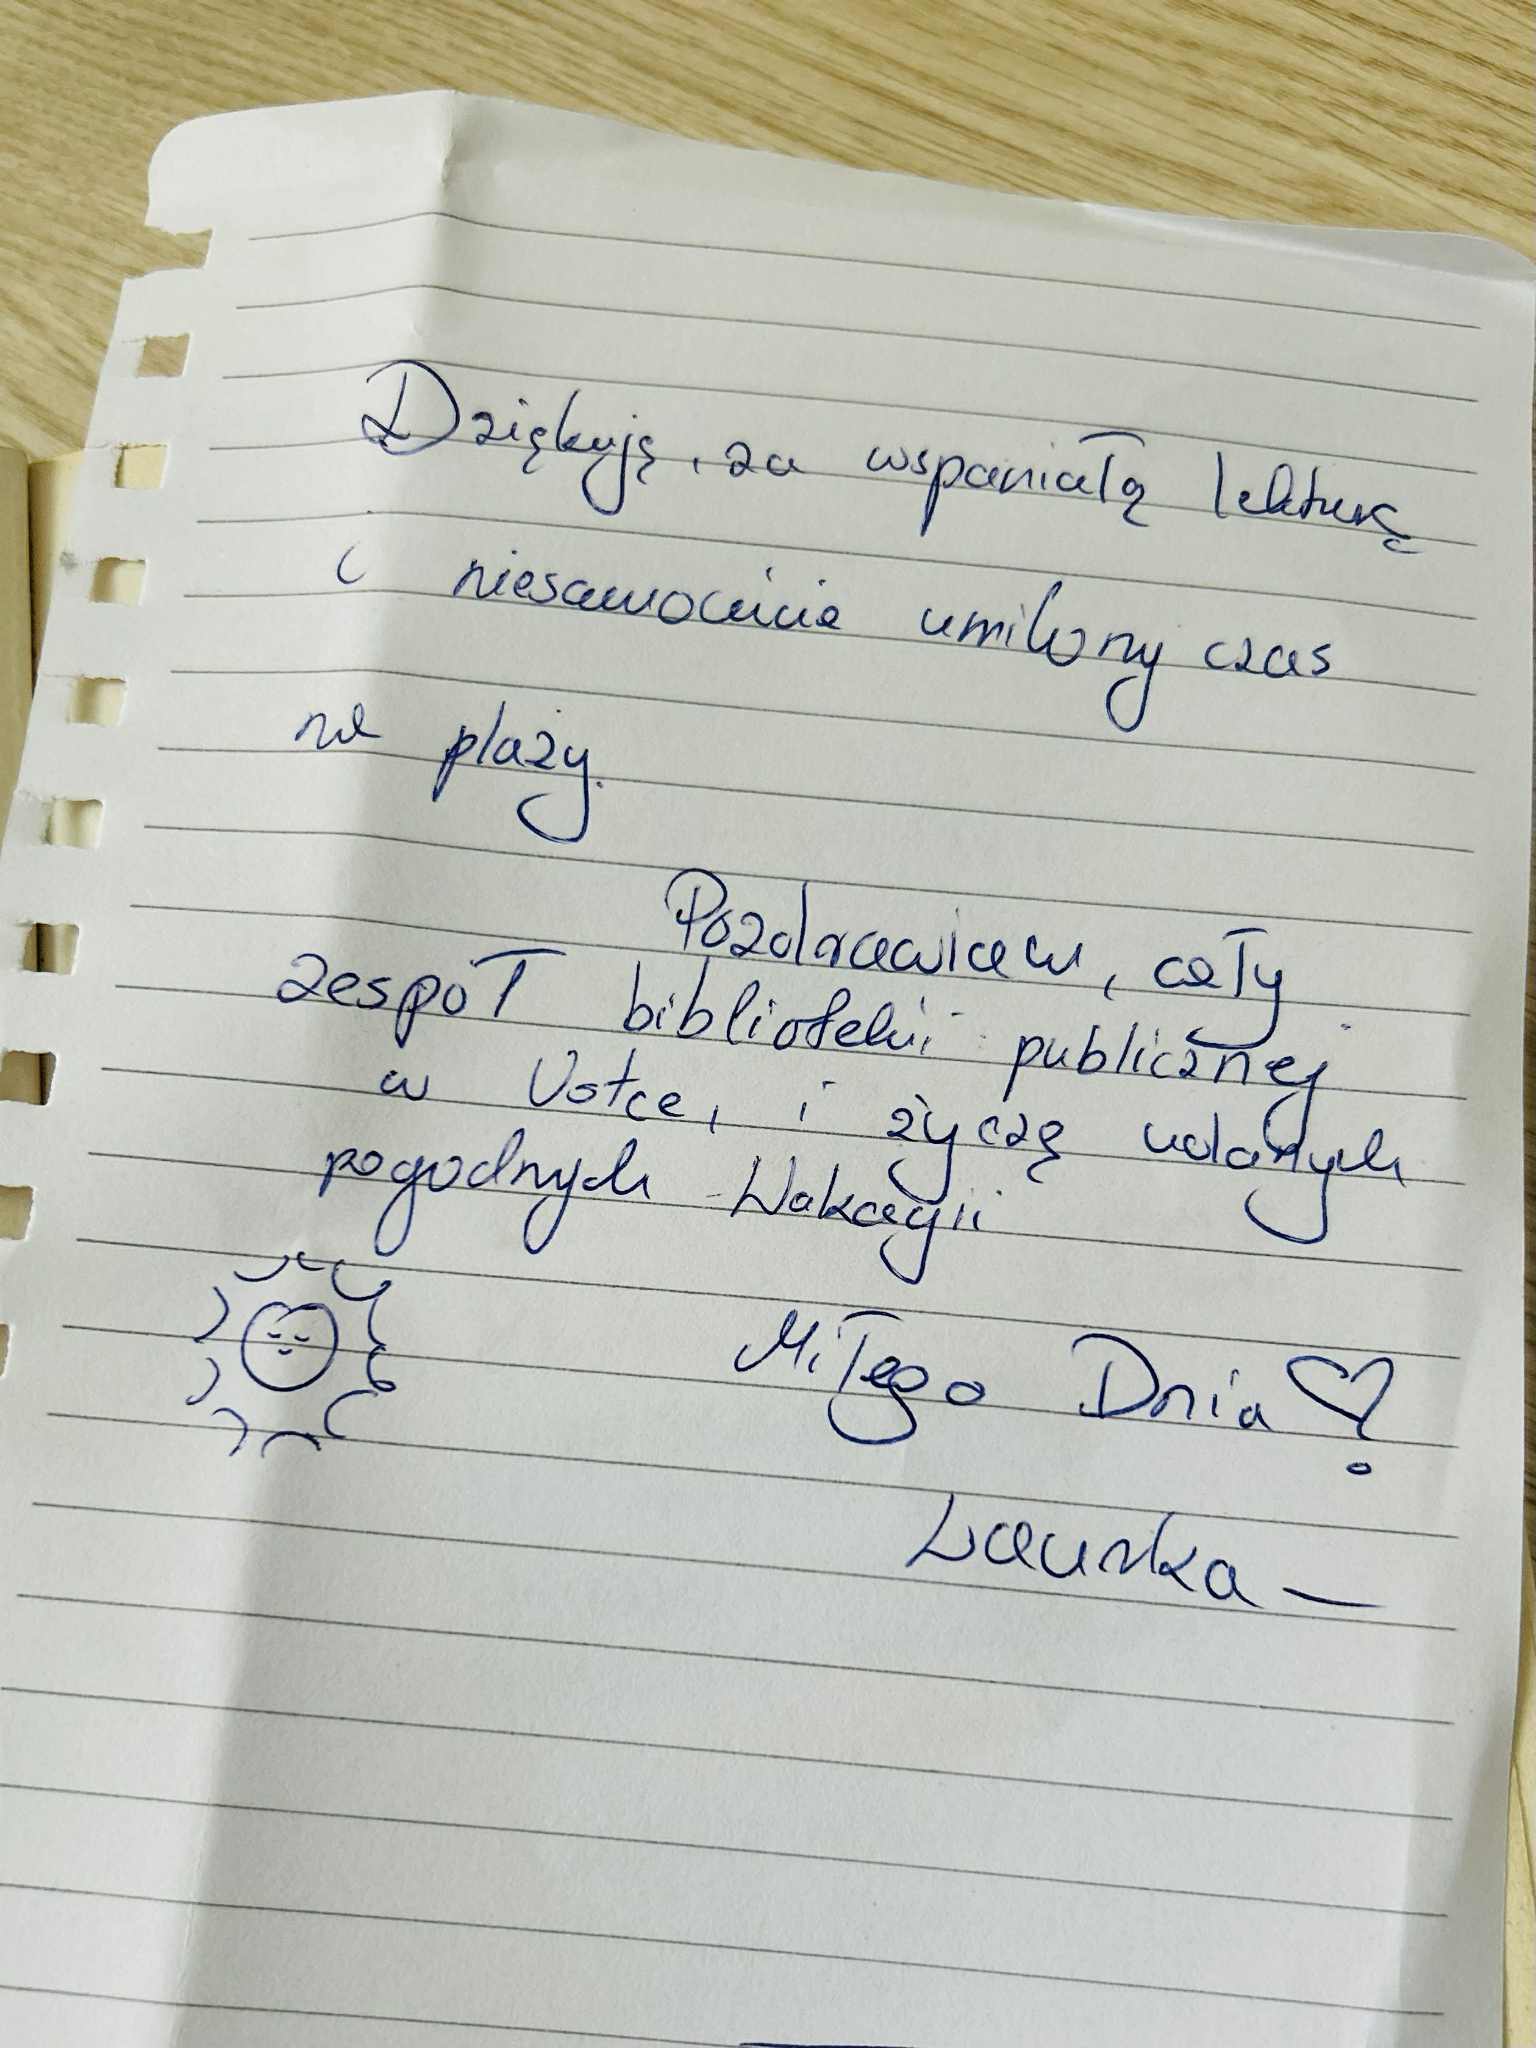 Dziękuję, za wspaniałą lekturę
i niesamowicie umilony czas
na plaży.
Pozdrawiam, cały
zespół biblioteki publicznej
w Ustce, i życzę udanych
pogodnych Wakacyii
Miłego Dnia
Laurka